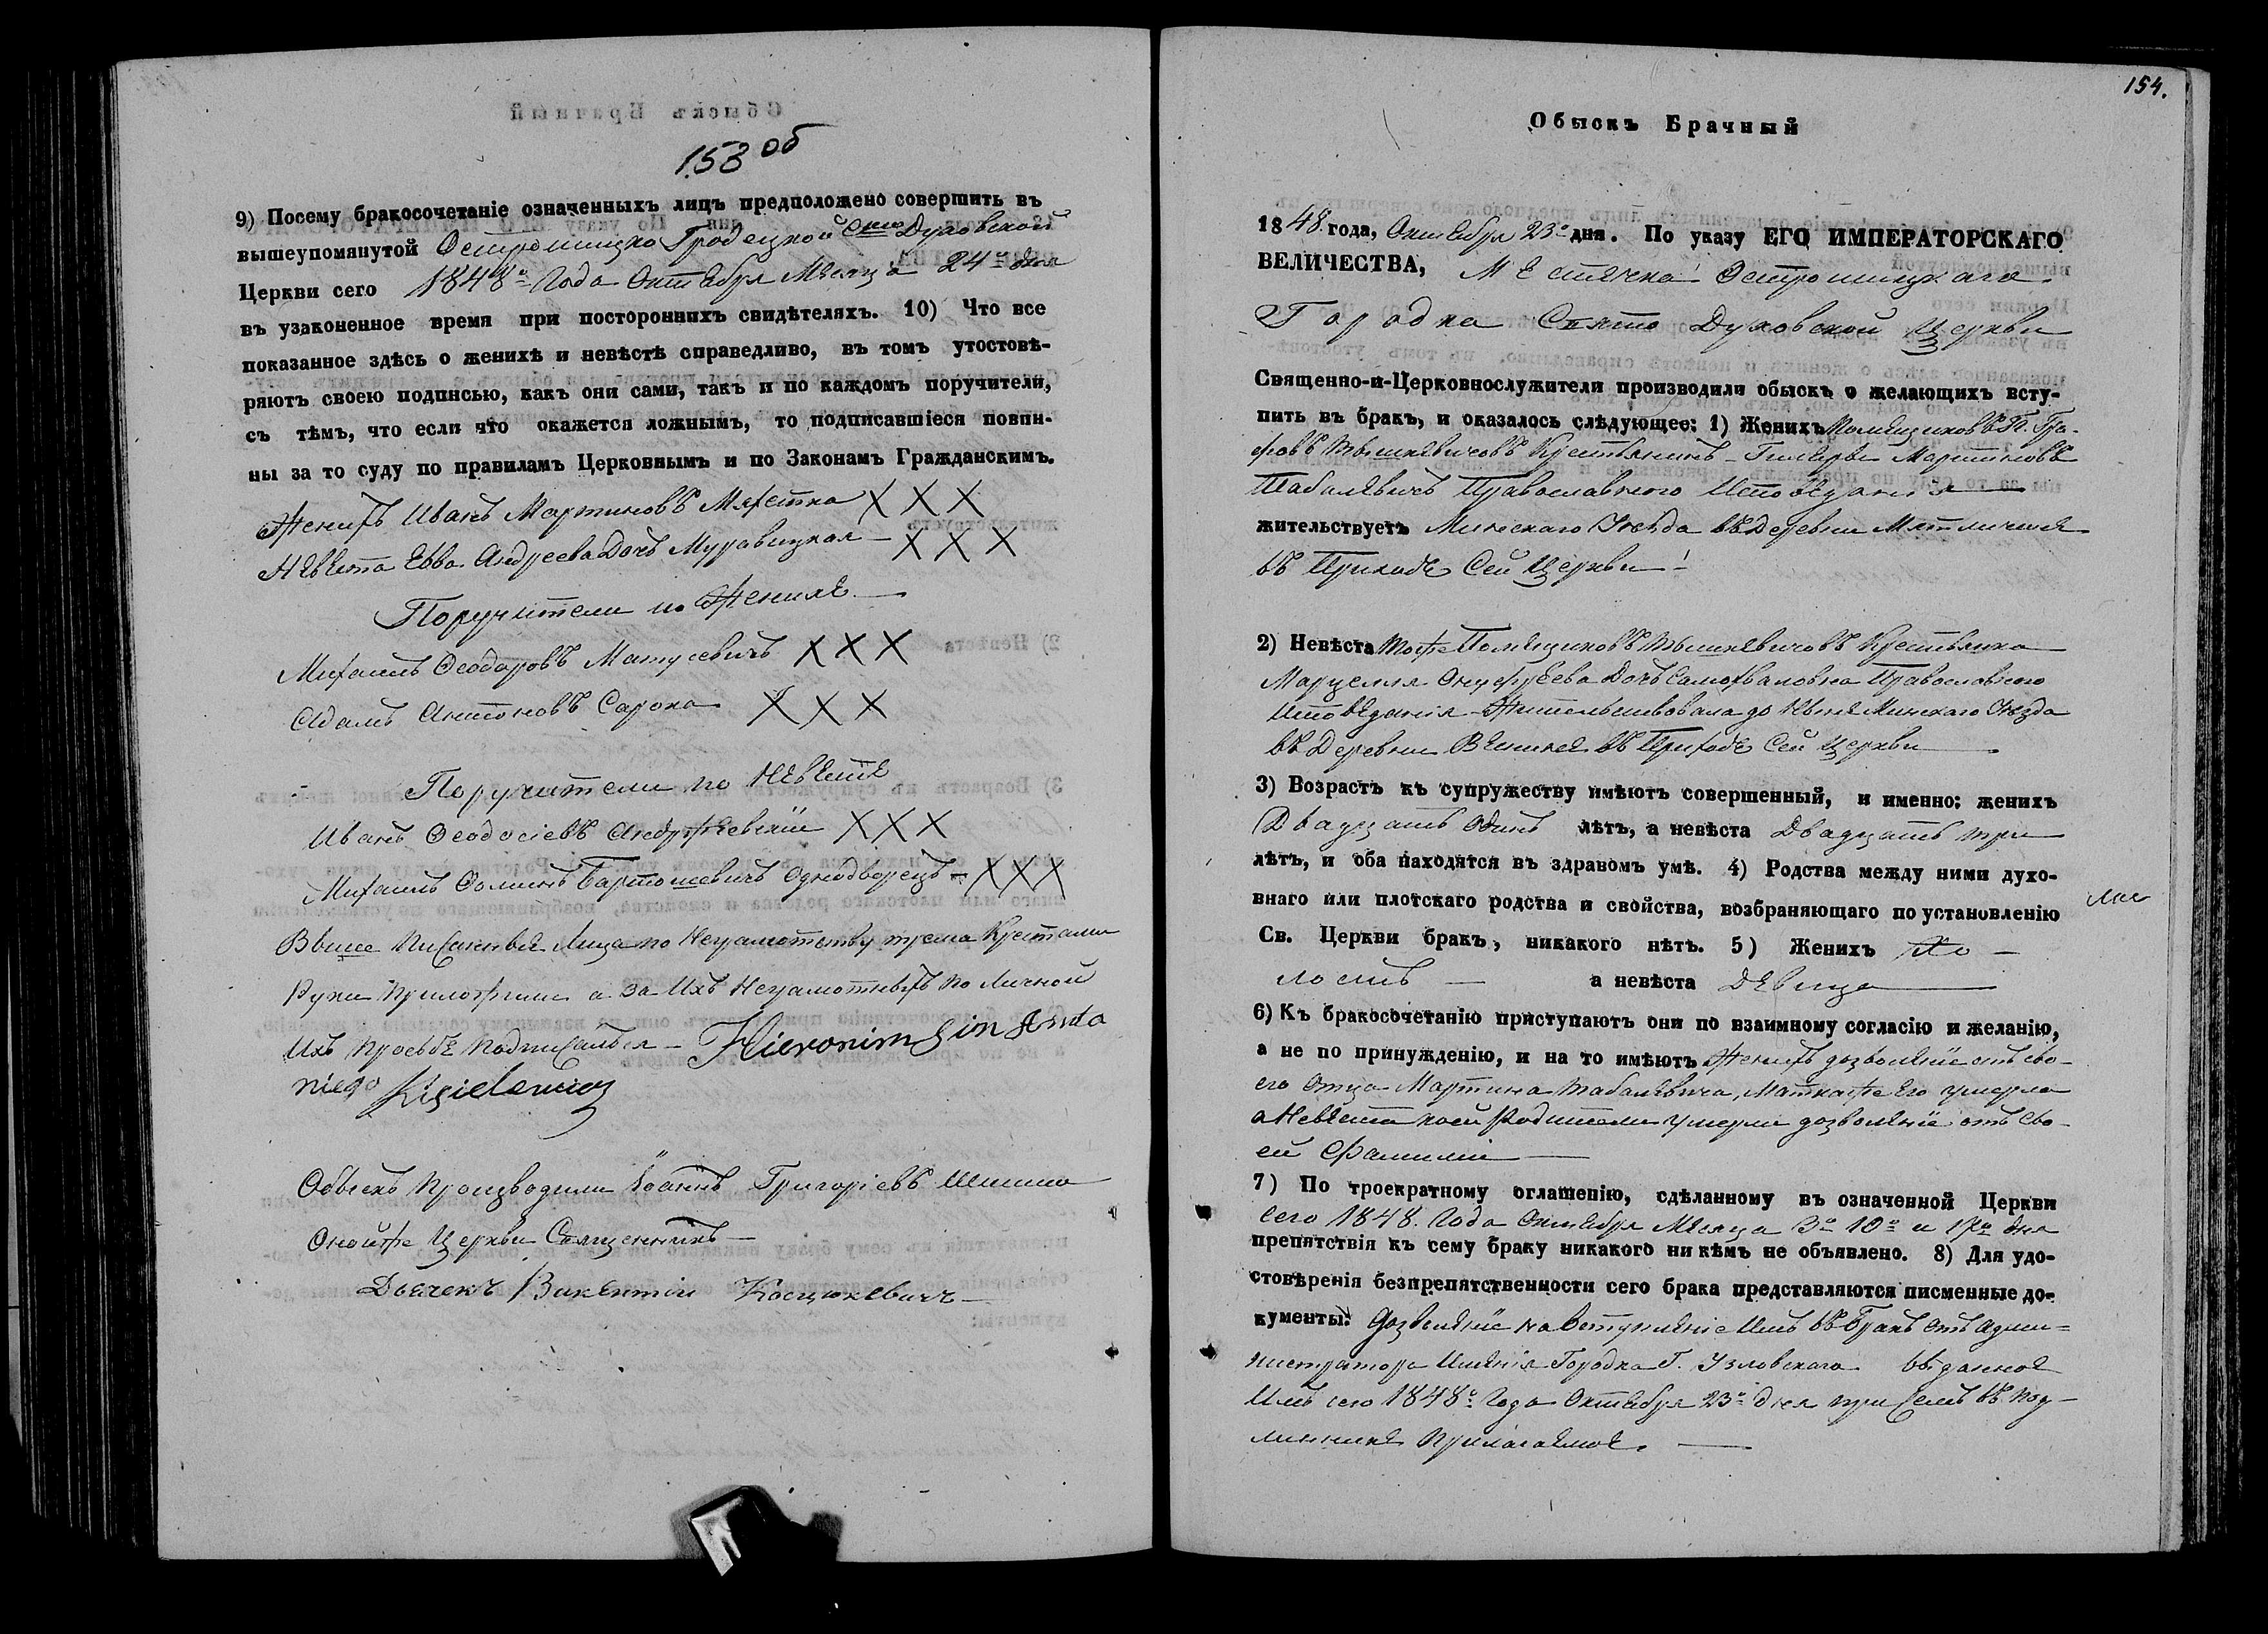 153 об
9) Посему бракосочетаніе означенныхъ лицъ предположено совершить въ
вышеупомянутой Остромицко Гродецкой Свято Духовской
Церкви сего 1848го Года Октября Месяца 24го дня
въ узаконенное время при постороннихъ свидѣтеляхъ. 10) Что все
показанное здѣсь о женихѣ и невѣстѣ справедливо, въ томъ утостовѣ-
ряютъ своею подписью, какъ они сами, такъ и по каждомъ поручители,
съ тѣмъ, что если что окажется ложнымъ, то подписавшіеся повин-
ны за то суду по правиламъ Церковнымъ и по Законамъ Гражданскимъ.
Женихъ Иванъ Мартиновъ XXX
Невѣста Евва Андреева Дочь Муравицкая XXX
Поручители по Женихѣ
Михаилъ Ѳеодоровъ Матусевичъ XXX
Адамъ Антоновъ Сарока XXX
Поручители по Невѣстѣ
Иванъ Ѳеодосіевъ Андржеевскій XXX
Михаилъ Ѳоминъ Бартошевичъ Однодворецъ XXX
Выше писанные Лица по Неграмотству трема Крестами
Руки приложили а за Ихъ Неграмотныхъ по личной
Ихъ просьбѣ подписался Hieronim Syn Anto
niego Kisielewicz
Обыскъ производили Іоаннъ Григоріевъ
Онойже Церкви Священникъ
Дьячекъ Викентій Косцюкевичъ
154.
Обыскъ Брачный
1848 года, Октября 23го дня. По указу ЕГО ИМПЕРАТОРСКАГО
ВЕЛИЧЕСТВА, Мѣстечка Остромицкаго
Городка Свято Духовской Церкви
Священно-и-Церковнослужители производили обыскъ о желающихъ всту-
пить въ бракъ, и оказалось слѣдующее: 1) Женихъ Помѣщиковъ Гра-
фовъ Тышкевичовъ Крестьянинъ Мартиновъ
Табалевичъ Православнаго Исповеданія
жительствуетъ Минскаго Уезда въ Деревни
въ Приходе Сей Церкви
2) Невѣста тоже Помѣщиковъ Тышкевичовъ Крестьянка
Марцелля Онуфреева Дочь Самохваловна Православнаго
Исповѣданія Жительствовала до Нынѣ Минскаго Уезда
въ Деревни въ Приходѣ Сей Церкви
3) Возрастъ къ супружеству имѣютъ совершенный, и именно: женихъ
Двадцать Одинъ лѣтъ, а невѣста Двадцать три
лѣтъ, и оба находятся въ здравомъ умѣ. 4) Родства между ними духо-
внаго или плотскаго родства и свойства, возбраняющаго по установленію
Св. Церкви бракъ, никакого нѣтъ. 5) Женихъ Хо-
лостъ а невѣста Дѣвица
6) Къ бракосочетанію приступаютъ они по взаимному согласію и желанію,
а не по принужденію, и на то имѣютъ Женихъ дозволеніе отъ сво-
его Отца Мартина Табалевича, Матка же Его умерла
а Невѣста коей Родители умерли дозволеніе отъ сво-
ей Фамиліи
7) По троекратному оглашенію, сдѣланному въ означенной Церкви
сего 1848. Года Октября Месяца 3го 10го и 17го дня
препятствія къ сему браку никакого ни кѣмъ не объявлено. 8) Для удо-
стовѣренія безпрепятственности сего брака представляются писменные до-
кументы: Дозволеніе на вступленіе Имъ въ Бракъ отъ Адми-
нистратора Имѣнія Городка Г. Узловскаго выданное
Имъ сего 1848го Года Октября 23го дня при семъ въ под-
линникѣ прилагаемое.